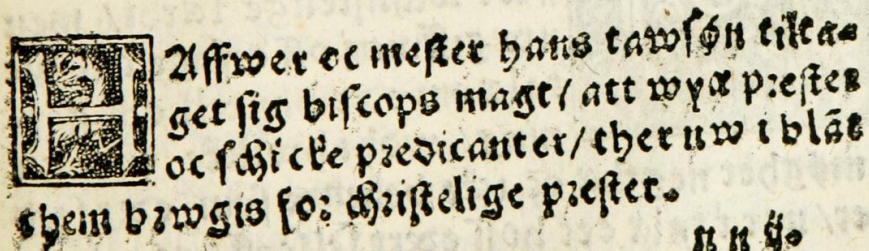 HAffwer oc mester hans tawsøn tilta⸗
get sig biscops magt/ att wyæ prester
oc schicke predicanter/ ther nw i blāt
them brwgis for christelige prester.
n n ij.